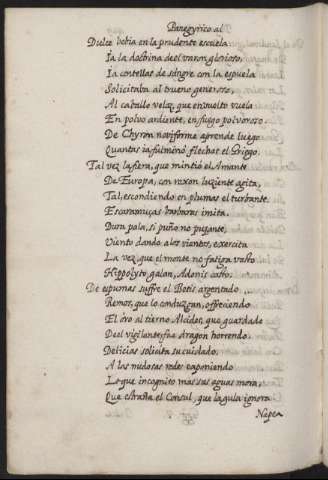 Panegyrico al
Dulce bebia en la prudente escuela
Ia la doctrina del varon glorioso,
Ia centellas de sangre con la espuela
Solicitaba al trueno generoso,
Al caballo veloz, que embuelto vuela
En polvo ardiente, en fuego polvoroso
De Chyron no biforme aprende luego
Quantas ia fulminò flechas el Griego.
Tal vez la fiera, que mintió el Amante
De Europa, con rexon luziente agita,
Tal, escondiendo en plumas el turbante
Escaramuças barbaras imita.
Dura pala, si puño no pujante,
Viento dando a los vientos, exercita
La vez, que el monte no fatiga vasto
Hippolyto galan, Adonis casto.
De espumas suffre el Betis argentado
Remos, que lo conduzgan, offreciendo
El oro al tierno Alcides, que guardado
Del vigilante fue dragon horrendo.
Delicias solicita su cuidado,
A las nudosas redes exponiendo
Lo que incognito mas sus aguas mora,
Que estraña el Consul, que la gula ignora
Napea